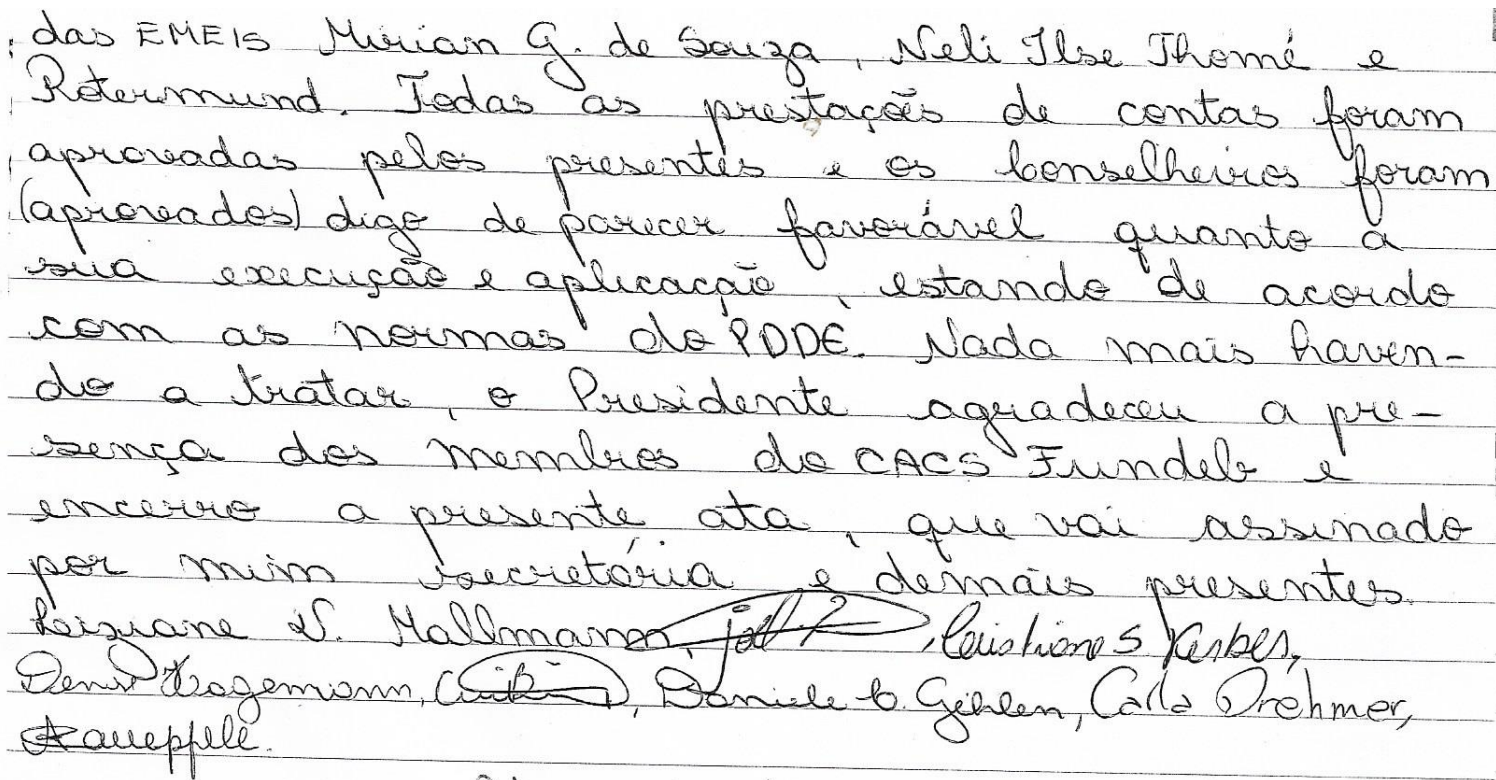 das EMEIS Mirian G. de Souza, Neli Ilse Thomé e
Rotermund. Todas as prestações de contas foram
aprovadas pelos presentes e os Conselheiros foram
(aprovados) digo de parecer favorável quanto a
sua execução e aplicação, estando de acordo
com as normas do PDDE. Nada mais haven-
do a tratar, o Presidente agradeceu a pre-
sença dos membros do CACS Fundeb e
encerro a presente ata, que vai assinado
por mim secretária e demais presentes.
V. Mallmann, Cristiane S
Denis Hagemann, Daniele C. Gehlen, Carla Drehmer,